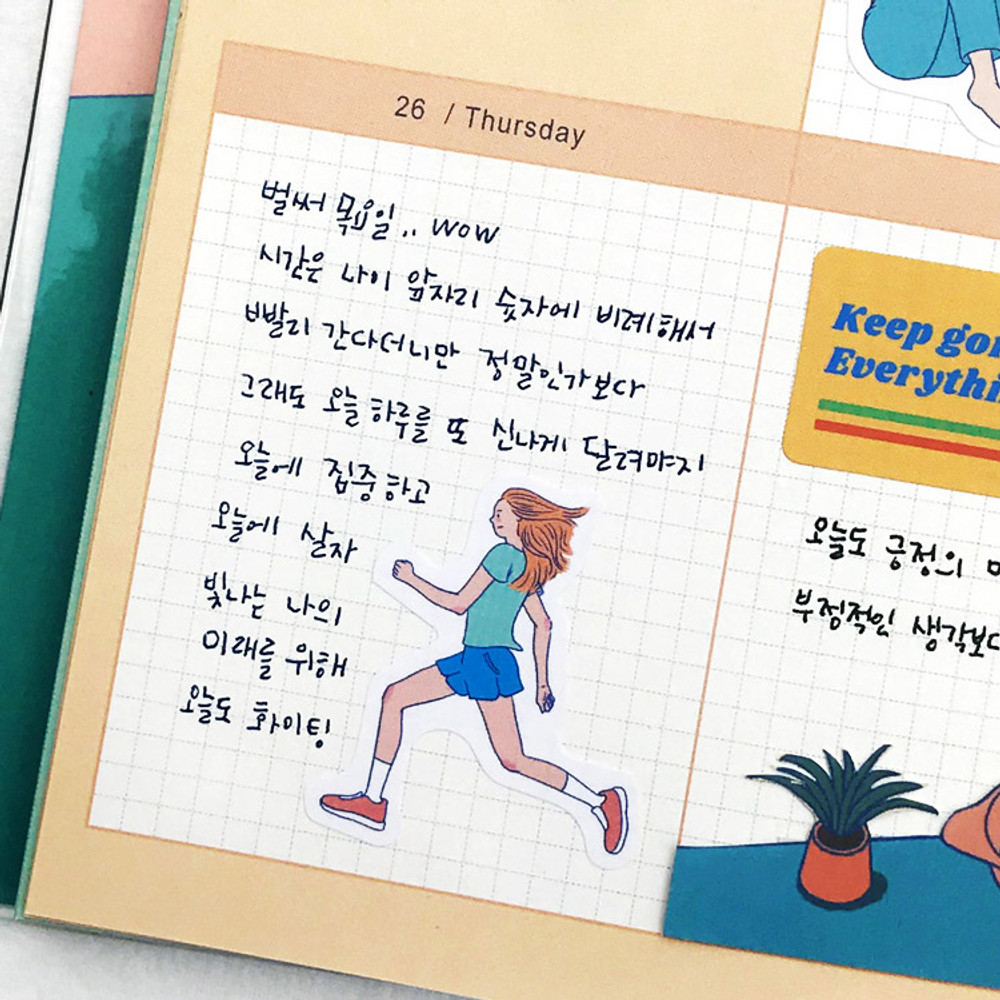 26 / Thursday
벌써 목요일.. wow
시간은 나이 앞자리 숫자에 비례해서
빨리 간다더니만 정말인가보다
그래도 오늘 하루를 또 신나게 달려야지
오늘에 집중하고
오늘에 살자
빛나는 나의
미래를 위해
오늘도 화이팅!
Keep
Everythi
오늘도 긍정의
부정적인 생각보다